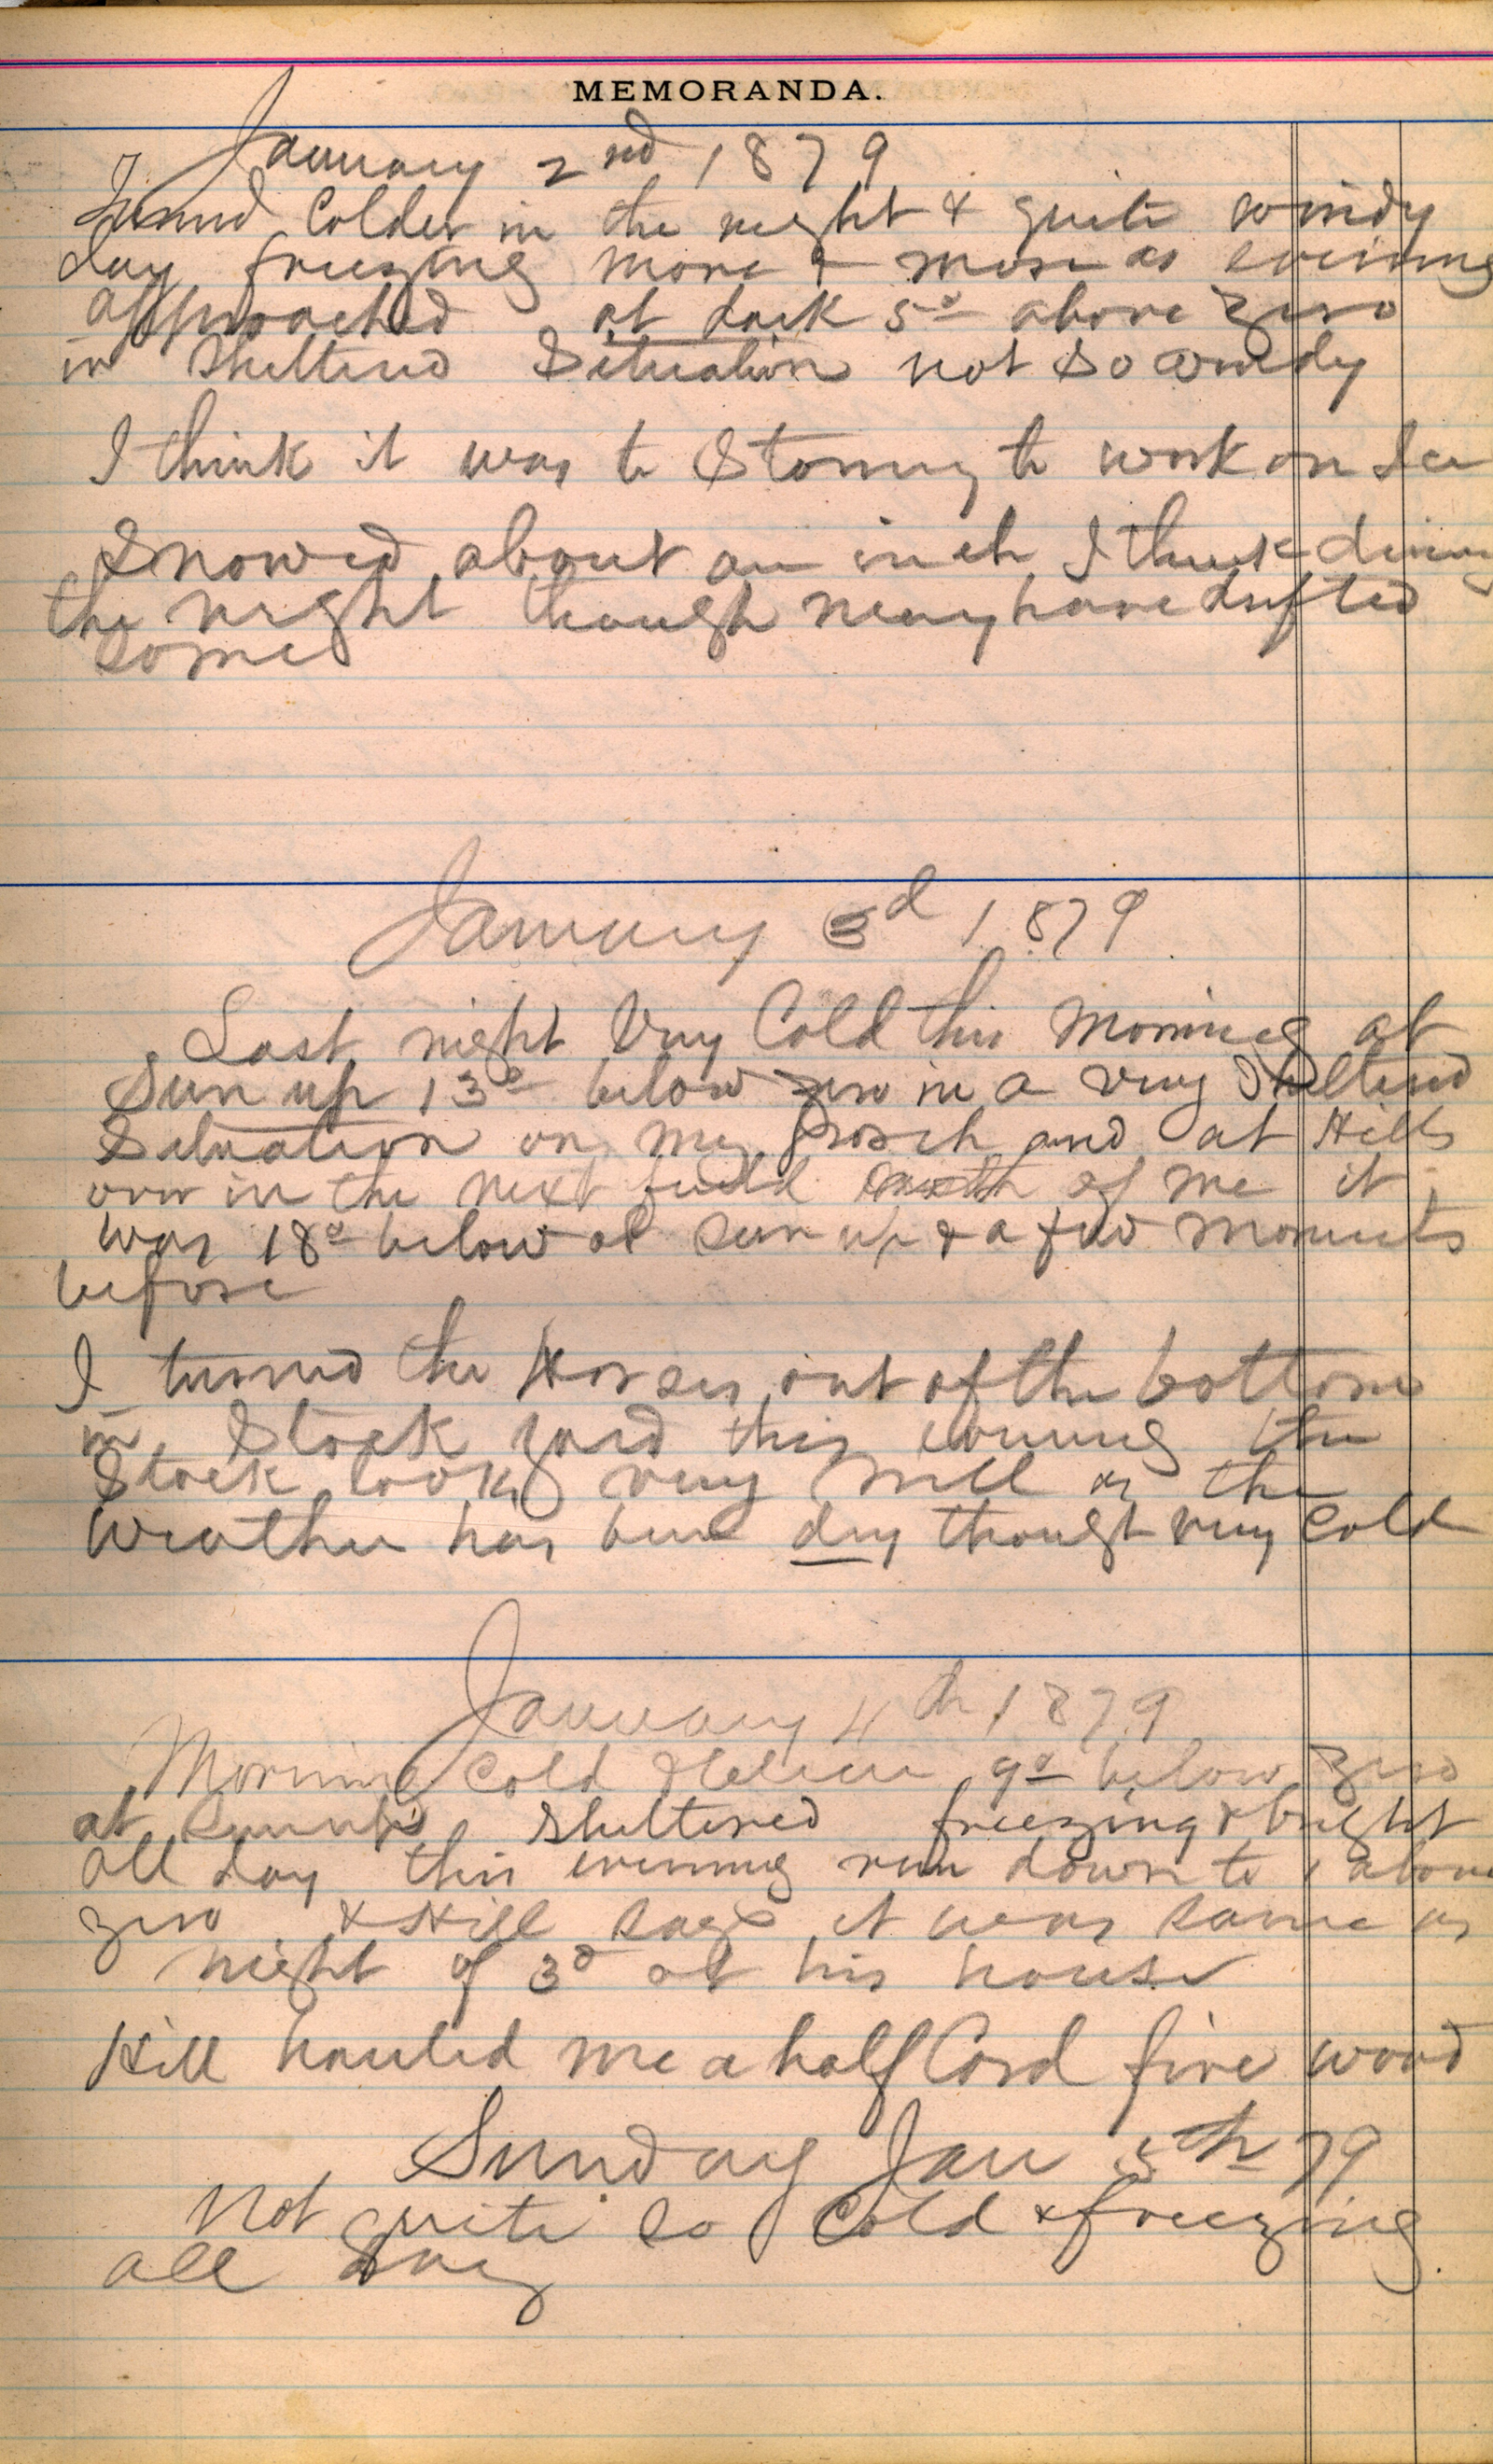 MEMORANDA.
January 2nd 1879
Turned Colder in the night & quite windy
day freezing more & more as evening
approached at dark 5° above zero
in Sheltered Situation not so windy
I think it was to Stormy to work on Ice
Snowed about an inch I think during
the night though may have drifted
some
January 3d 1879
Last night Very Cold this Morning at
Sun up 13° below zero in a very Sheltered
Situation on my porch and at Hills
over in the next field of me it
was 18° below at Sun up & a few moments
before
I turned the Horses out of the bottom
in Stock yard this evening the
Stock look very well as the
Weather has been dry though very Cold
January 4th 1879
Morning Cold 9° below zero
at Sunup Sheltered freezing & bright
all day this evening run down to 1 above
zero & Hill says it was same as
night of 3d at his house
Hill hauled me a half Cord fire wood
Sunday Jan 5th 79
Not quite so Cold & freezing
all day